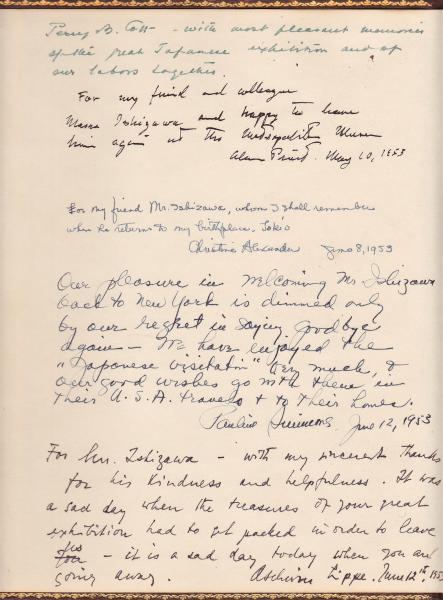 Perry B. Cott - with most pleasant memories
of the great Japanese exhibition and of
our labors together.
For my friend and colleague
Masao Ishizawa and happy to have
him again at the Metropolitan Museum
Alan Priest. May 10, 1953
For my friend Mr. Ishizawa, whom I shall remember
when he returns to my birthplace, Tokio
Christine Alexander June 8, 1953
Our pleasure in welcoming Mr. Ishizawa
back to New York is dimmed only
by our regret in saying goodbye
again - We have enjoyed the
"Japanese visitation" very much, &
our good wishes go with them in
their U.S.A. travels & to their homes.
Pauline Simmons, June 12, 1953
For Mr. Ishizawa - with my sincerest thanks
for his kindness and helpfulness. It was
a sad day when the treasures of your great
exhibition had to get packed in order to leave
us - it is a sad day today when you are
going away. Aschwin Lippe. June 12th, 1953